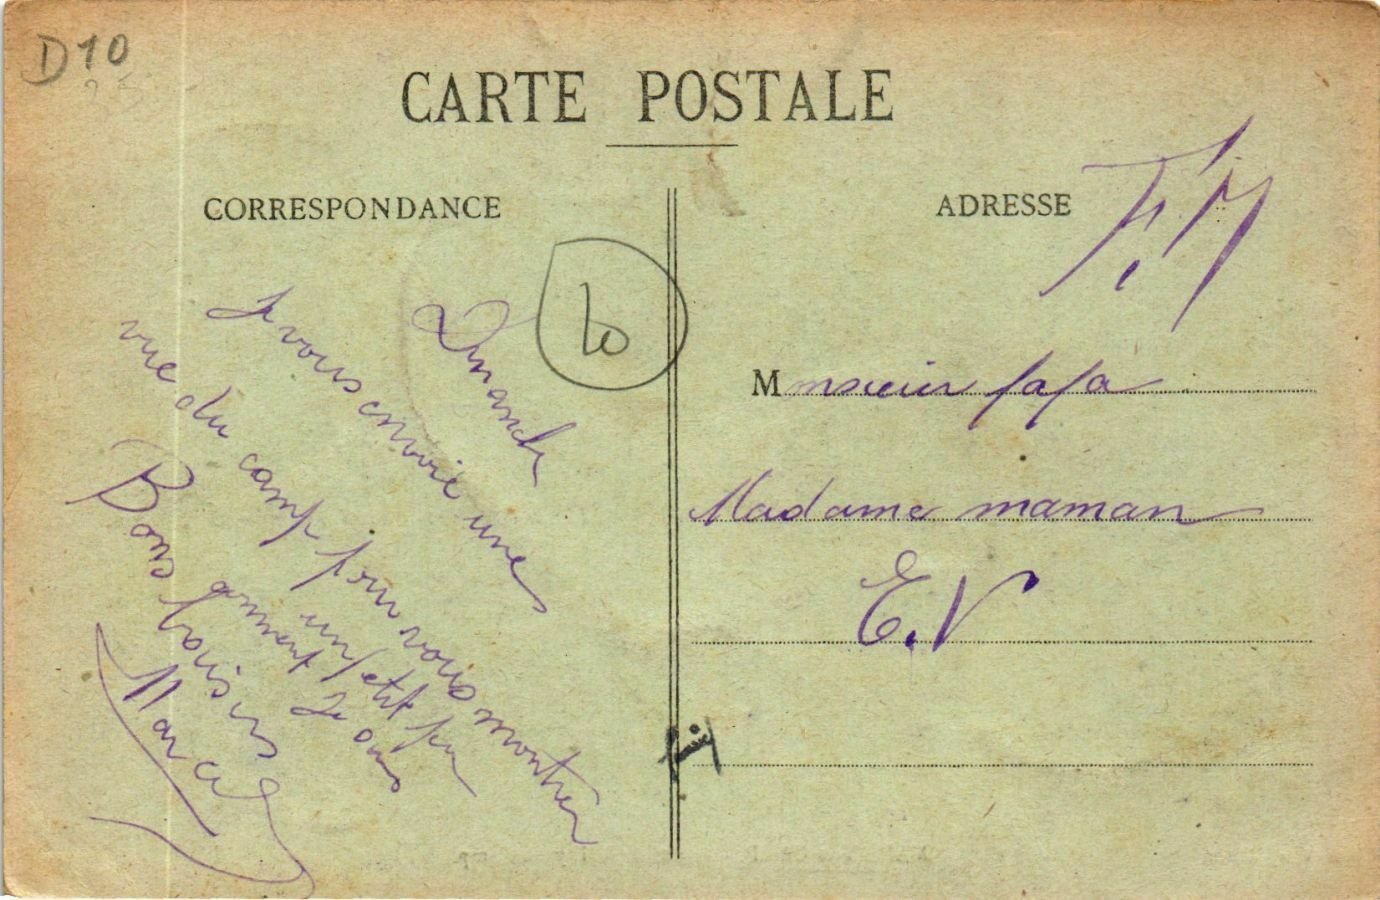 D10
CARTE POSTALE
CORRESPONDANCE
ADRESSE
F.M
10
Dimanche
Je vous envoie une
vue du camp pour vous montrer
un petit peu
Bons baisers
Marcel
Monsieur papa
Madame maman
E.V